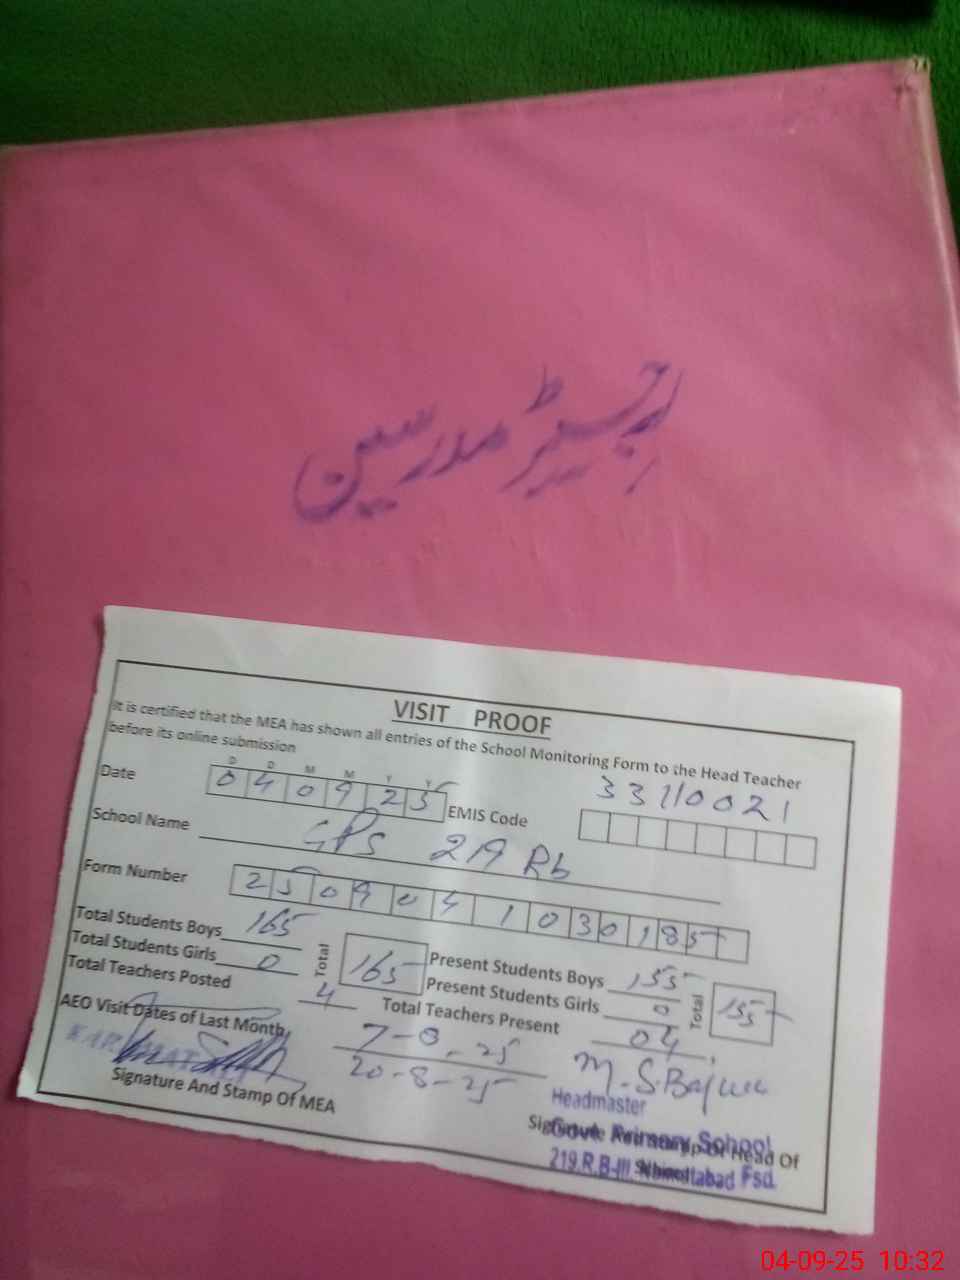 رجسٹر مدرسین
VISIT PROOF
It is certified that the MEA has shown all entries of the School Monitoring Form to the Head Teacher
before its online submission
D D M M Y Y
Date 04 09 25 EMIS Code 33110021
School Name GPS 219 Rb
Form Number 2509041030185
Total Students Boys 165 Total 165 Present Students Boys 155 Total 155
Total Students Girls 0 Present Students Girls 0
Total Teachers Posted 4 Total Teachers Present 04
AEO Visit Dates of Last Month 7-8-25
20-8-25
M.S.Bajwa
Signature And Stamp Of MEA
Headmaster
Signature And Stamp Of Head Of
Govt. Primary School
School
219.R.B-III. Fsd.
04-09-25 10:32